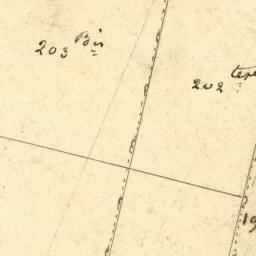 203 Bis
202 ter
19